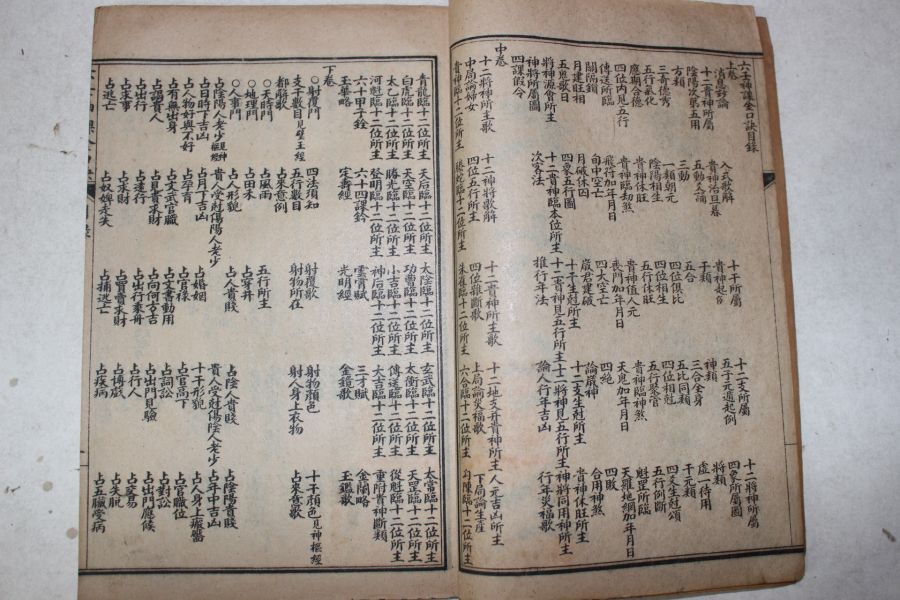 六壬神課金口訣目錄
上卷
消息妙論 入式歌解 十干所屬 十二支所屬 十二將神所屬
十二貴神所屬 貴神治旦暮 貴神起例 五子元遁起例 四象所屬圖
陰陽次第五用 五動爻論 干類 神類 將類
方類 三動 五合 三合全身 虛一待用
三奇德秀 一類朝元 四位俱比 五比同類 干元類
五行氣化 陰陽相生 四位相生 四位相剋 四支生剋頌
應期合德 貴神休旺 五行休旺 五行聚管 五行例斷
四位內見五行 貴神臨劫煞 貴神值人元 貴神臨神煞 魁罡所臨
傳送所臨 飛符加年月日 喪門加年月日 天鬼加年月日 天羅地網加年月日
關隔鎖 旬中空亡 四大空亡 四絕 四敗
月建旺相 月破休囚 歲君建破 論歲神 合用神煞
五鬼歌日 四象五行圖 十干生剋所主 十二支生剋所主 貴神休旺所主
將神源貴所主 十二貴神臨本位所主 十二貴神見五行所主 十二將神見五行所主 神將同用神所主
神將所屬圖 次客法 推行年法 論人行年吉凶 行年災福歌
四課假令
中卷
十二將神所主歌 十二神將歌解 十二貴神所主 十二地支并貴神所主 人元吉凶所主
中局論婦女 四位雜斷歌 上局論災福歌 下局論生產
貴神臨十二位所主 螣蛇臨十二位所主 朱雀臨十二位所主 六合臨十二位所主 勾陳臨十二位所主
青龍臨十二位所主 天后臨十二位所主 太陰臨十二位所主 玄武臨十二位所主 太常臨十二位所主
白虎臨十二位所主 天空臨十二位所主 功曹臨十二位所主 太衝臨十二位所主 天罡臨十二位所主
太乙臨十二位所主 勝光臨十二位所主 小吉臨十二位所主 傳送臨十二位所主 從魁臨十二位所主
河魁臨十二位所主 登明臨十二位所主 神后臨十二位所主 大吉臨十二位所主 重附貴神斷類
六十甲子鈐 六十四課鈐 靈霄賦 三才賦 金闕略
玉華略 定壽經 光明經 金鏡歌 玉鑑歌
下卷
○射覆門 四法須知 射覆歌 射物顏色 十干顏色見神樞經
支干數目見望玉經 五行數目 射物所在 射人身上衣物 占來意歌
都解歌 占來意例
○天時門 占風雨 五行所主
○地理門 占田禾 占穿井
○人事門 占人形貌 占人貴賤 占陰人貴賤 占陰陽貴賤
占陰陽人老少見神樞經 貴人受尅傷陽人老少 貴人受尅傷陰人老少 占年中吉凶
占日時下吉凶 占月下吉凶 占婚姻 十干形貌 占人身上癍靨
占人物好與不好 占孕育 占官祿 占官高下 占官職位
占有無出身 占文武官職 占文書動用 占詞訟 占對訟
占謁貴人 占見貴求財 占向何方吉 占出門見驗 占出門應候
占出行 占遠行 占出行乘舟 占行人 占交易
占求事 占求財 占買賣求財 占博戲 占失脫
占逃亡 占奴婢走失 占捕逃亡 占疾病 占五臟受病